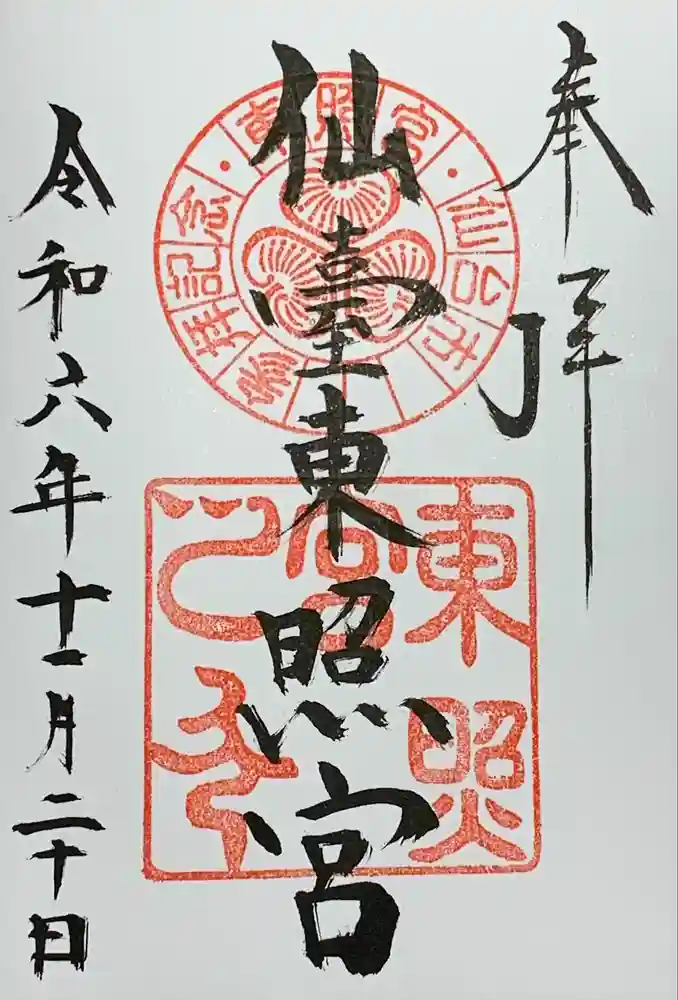 奉拝
仙臺東照宮
令和六年十一月二十日
東照宮・仙台市
参拝記念・
東照
宮
之印